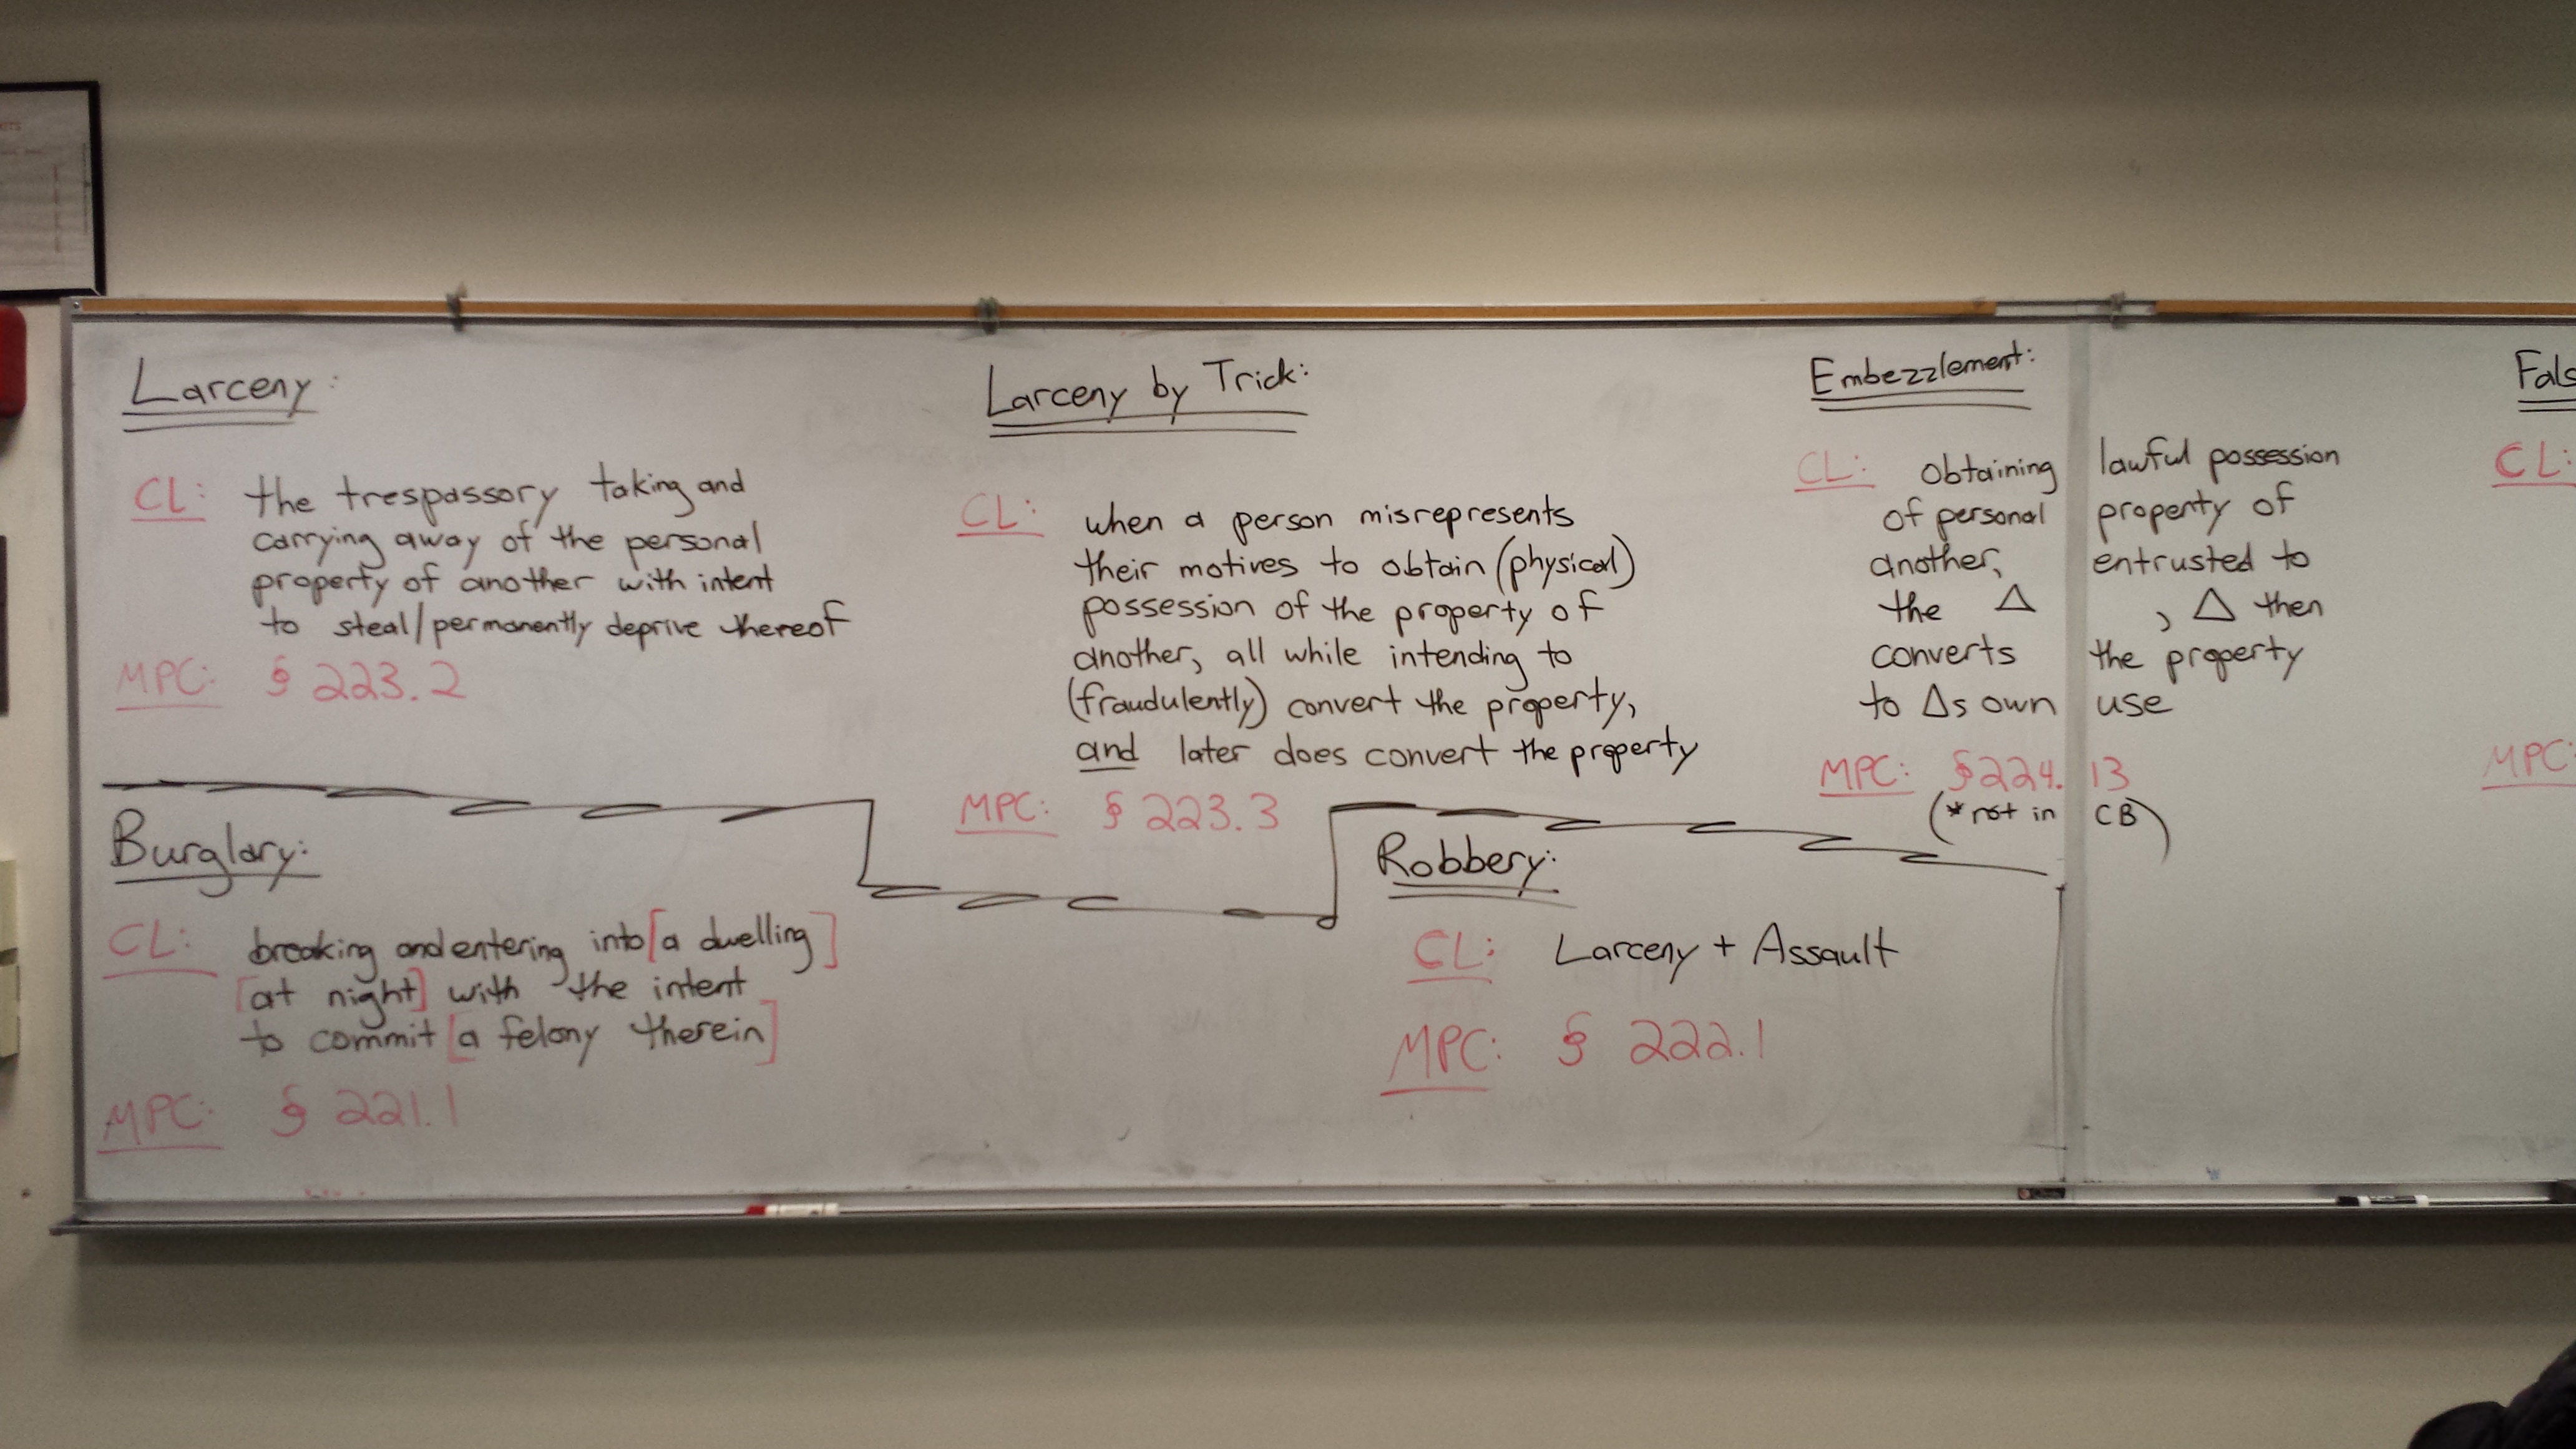 Larceny:
CL: the trespassory taking and
carrying away of the personal
property of another with intent
to steal/permanently deprive thereof
MPC: § 223.2
Larceny by Trick:
CL: when a person misrepresents
their motives to obtain (physical)
possession of the property of
another, all while intending to
(fraudulently) convert the property,
and later does convert the property
MPC: § 223.3
Embezzlement:
CL: obtaining lawful possession
of personal property of
another, entrusted to
the Δ , Δ then
converts the property
to Δs own use
MPC: §224.13
(*not in CB)
Fals
CL:
MPC:
Burglary:
CL: breaking and entering into [a dwelling]
[at night] with the intent
to commit [a felony therein]
MPC: § 221.1
Robbery:
CL: Larceny + Assault
MPC: § 222.1